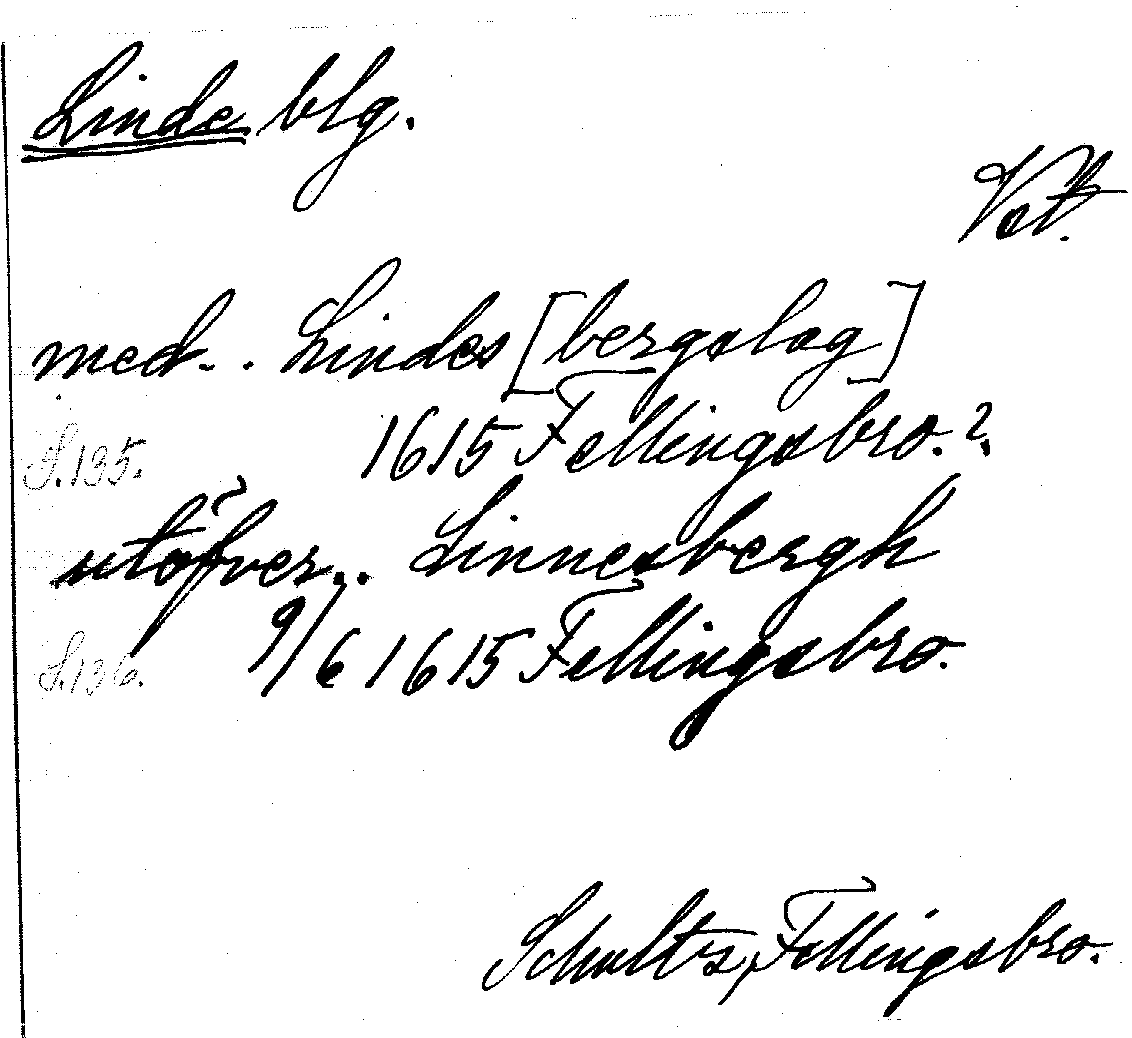 Linde blg.
Vstl.
med. . Lindes [bergslag]
S. 135. 1615 Fellingsbro. ?.
utöfver... Linnesbergh
S. 136. 9/6 1615 Fellingsbro.
Schultz, Fellingsbro.